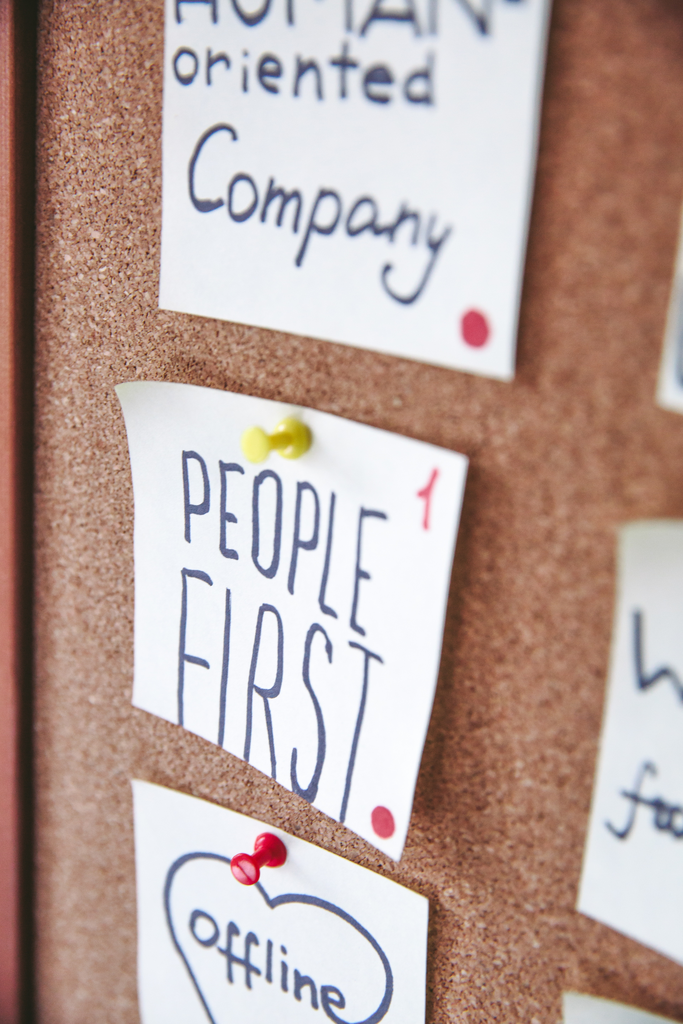 HUMAN-
oriented
Company
1
PEOPLE
FIRST
offline